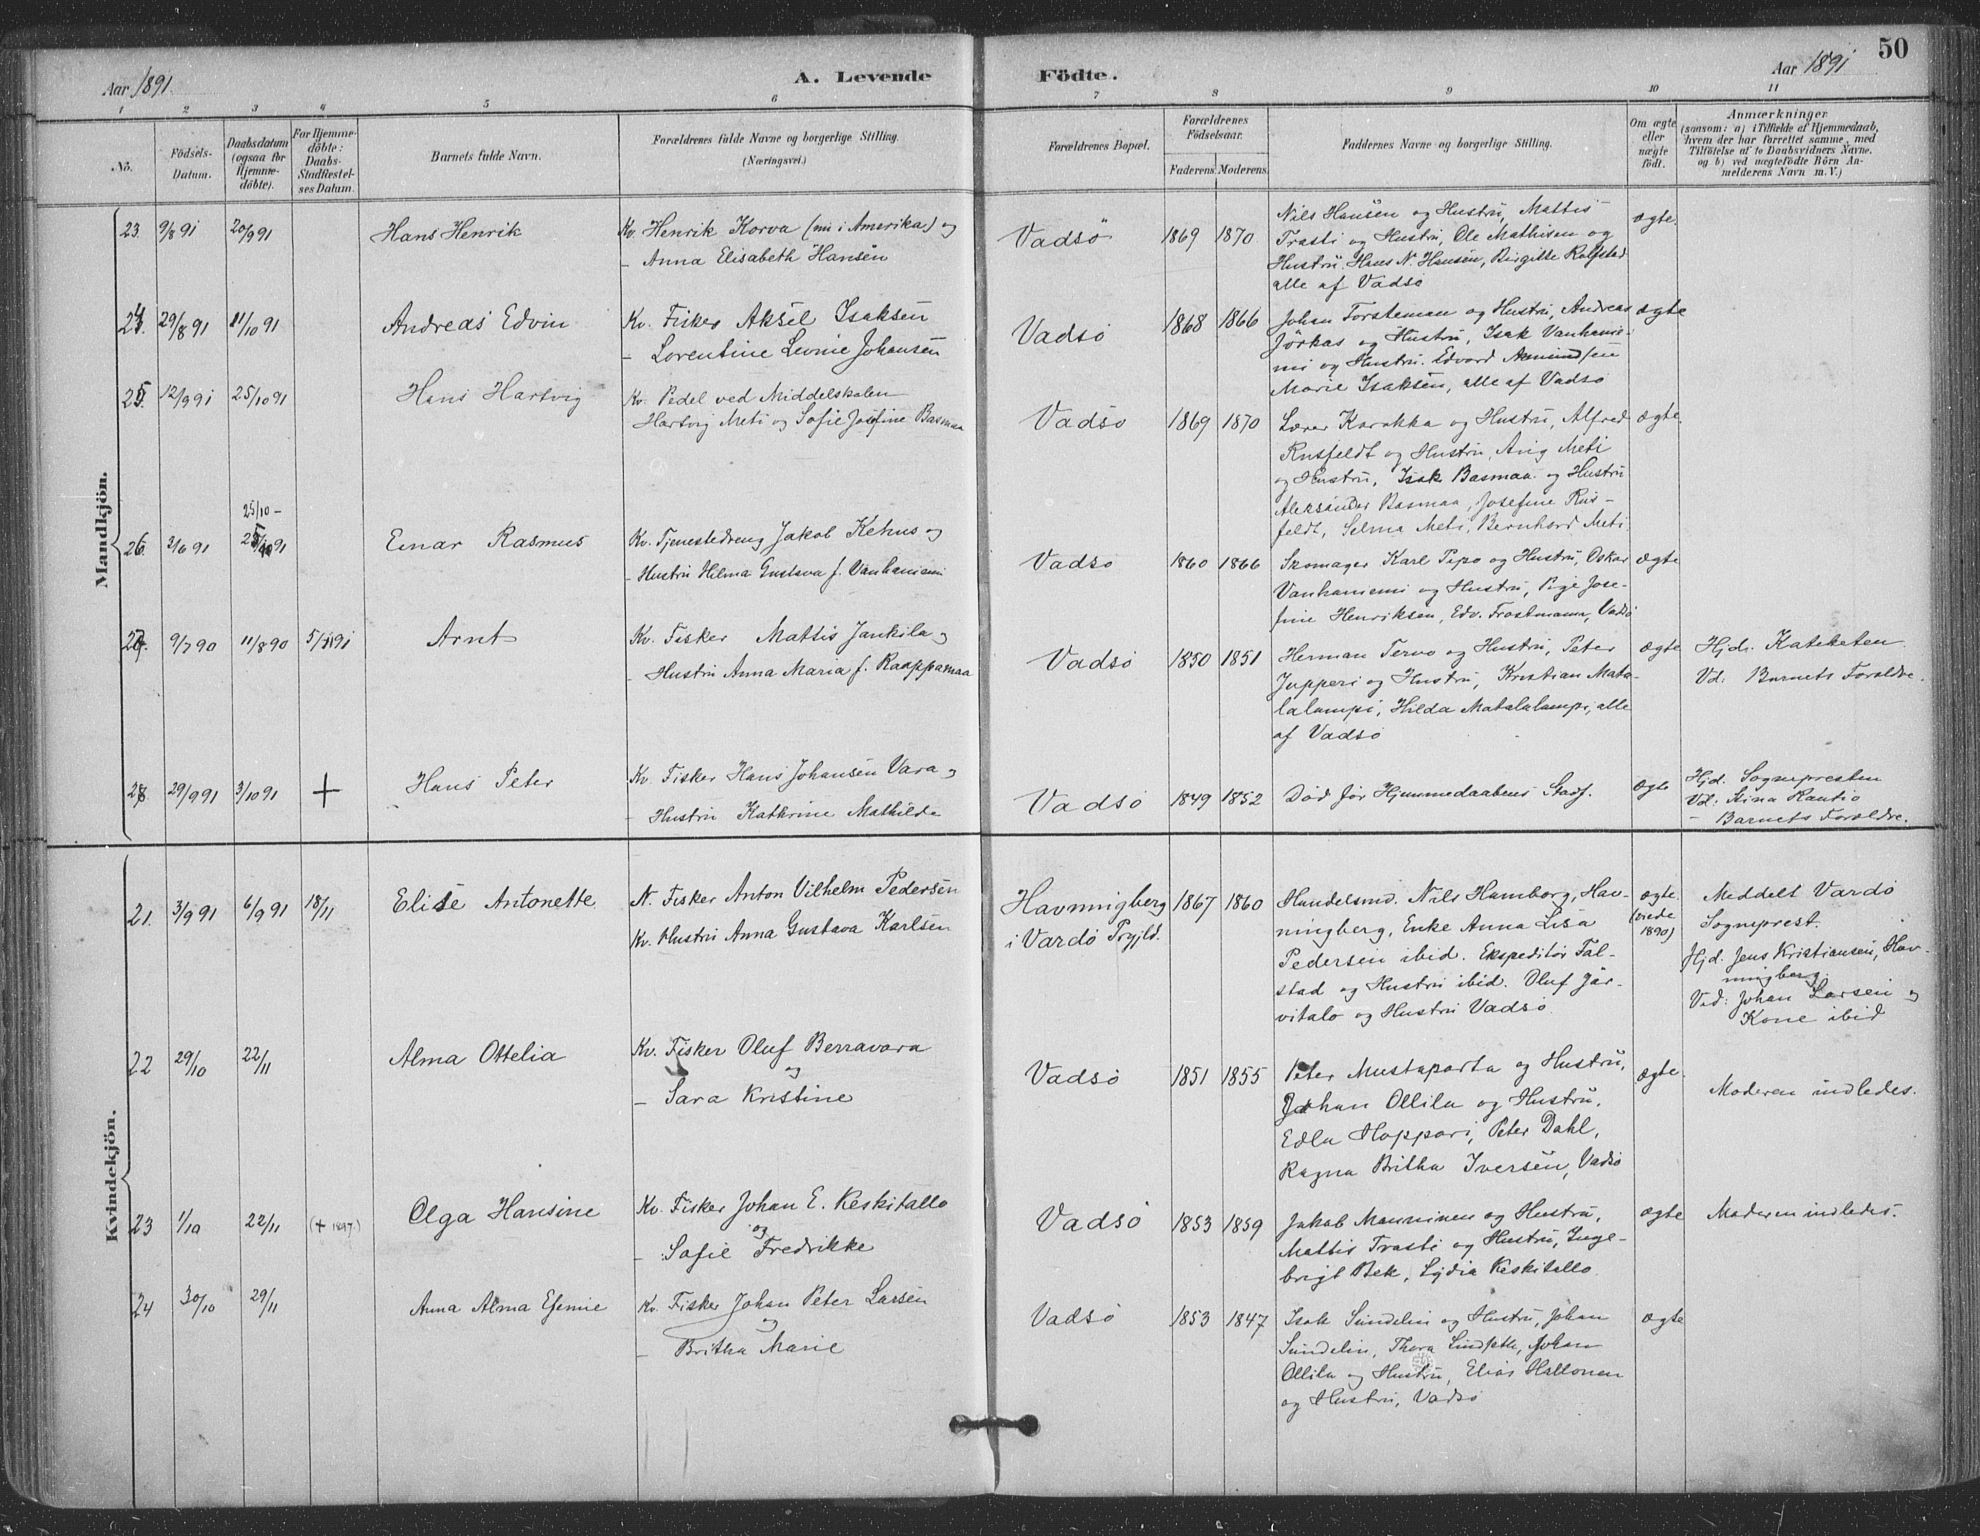 50
Aar 1891.
A. Levende
Födte.
Aar 1891
1 2 3 4 5 6 7 8 9 10 11
No.
Födsels-
Datum.
Daabsdatum
(ogsaa for
Hjemme-
döbte).
For Hjemme-
döbte:
Daabs-
Stadfæstel-
ses Datum.
Barnets fulde Navn.
Forældrenes fulde Navne og borgerlige Stilling.
(Næringsvei.)
Forældrenes Bopæl.
Forældrenes
Födselsaar.
Faderens. Moderens.
Faddernes Navne og borgerlige Stilling.
Om ægte
eller
uægte
födt.
Anmærkninger
(saasom: a) i Tilfælde af Hjemmedaab,
hvem der har forrettet samme, med
Tilföielse af to Daabsvidners Navne.
og b) ved uægtefödte Börn An-
melderens Navn m. V.)
Mandkjön.
23. 9/8 91 20/9 91
Hans Henrik
Kv. Henrik Korva (nu i Amerika) og
– Anna Elisabeth Hansen
Vadsö 1869 1870
Nils Hansen og Hustru, Mattis
Trasti og Hustru, Ole Mathisen og
Hustru. Hans N. Hansen, Birgitte Rolfstad
alle af Vadsö
ægte.
24. 29/8 91 11/10 91
Andreas Edvin
Kv. Fisker Aksel Isaksen
– Lorentine Leonie Johansen
Vadsö 1868 1866
Johan Forsteman og Hustru, Andreas
Jörkas og Hustru, Isak Vanhanie-
mi og Hustru. Edvard Amundsen
Marie Isaksen, alle af Vadsö
ægte
25. 12/9 91 25/10 91
Hans Hartvig
Kv. Pedel ved Middelskolen
Hartvig Meti og Sofie Josefine Basmaa
Vadsö 1869 1870
Lærer Karakka og Hustru, Alfred
Rusfeldt og Hustru, Aug Meti
og Hustru, Isak Basmaa og Hustru
Aleksander Basmaa, Josefine Rus-
feldt, Selma Meti, Bernhard Meti.
ægte.
25/10 –
26. 3/6 91 25/10 91
Einar Rasmus
Kv. Tjenestedreng Jakob Kehus og
– Hustru Hilma Gustava f. Vanhaniemi
Vadsö 1860 1866
Skomager Karl Pipo og Hustru, Oskar
Vanhaniemi og Hustru, Pige Jose-
fine Henriksen, Edv. Frostmann, Vadsö
ægte
27. 9/7 90 11/8 90 5/11 91
Arnt
Kv. Fisker Mattis Jankila og
– Hustru Anna Maria f. Raappamaa
Vadsö 1850 1851
Herman Tervo og Hustru, Peter
Jupperi og Hustru, Kristian Mata-
lalampi, Hilda Matalalampi, alle
af Vadsö
ægte
Hjd. Kateketen
Vd: Barnets Foreldre.
28. 29/9 91 3/10 91 +
Hans Peter
Kv. Fisker Hans Johansen Vara og
– Hustru Kathrine Mathilde
Vadsö 1849 1852
Död för Hjemmedaabens Stadf.
ægte
Hjd. Sognepresten
Vd: Stina Rautio
– Barnets Foreldre.
Kvindekjön.
21. 3/9 91 6/9 91 18/11
Elise Antonette
N. Fisker Anton Vilhelm Pedersen
Kv. Hustru Anna Gustava Karlsen
Havningberg
i Vardö Prgjld.
1867 1860
Handelsmd. Nils Hamborg, Hav-
ningberg, Enke Anna Lisa
Pedersen ibid. Ekspeditör Fal-
stad og Hustru ibid. Oluf Jär-
vitalo og Hustru Vadsö.
ægte
(viede
1890)
Meddelt Vardö
Sogneprest.
Hjd. Jens Kristiansen, Hav-
ningberg.
Vid: Johan Larsen og
Kone ibid
22 29/10 22/11
Alma Ottelia
Kv. Fisker Oluf Berravara
og
– Sara Kristine
Vadsö 1851 1855
Peter Mustaparta og Hustru,
Johan Ollila og Hustru.
Edla Hoppari, Peter Dahl,
Ragna Britha Iversen, Vadsö
ægte
Moderen indledes.
23 1/10 22/11 (+ 1897.)
Olga Hansine
Kv. Fisker Johan E. Keskitallo
og
– Sofie Fredrikke
Vadsö 1853 1859
Jakob Manninen og Hustru,
Mattis Trasti og Hustru, Inge-
brigt Bek, Lydia Keskitallo
ægte
Moderen indledes.
24 30/10 29/11
Anna Alma Efemie
Kv. Fisker Johan Peter Larsen
og
– Britha Marie
Vadsö 1853 1847
Isak Sundelin og Hustru, Johan
Sundelin, Thora Lindseth, Johan
Ollila og Hustru, Elias Hallonen
og Hustru, Vadsö
ægte